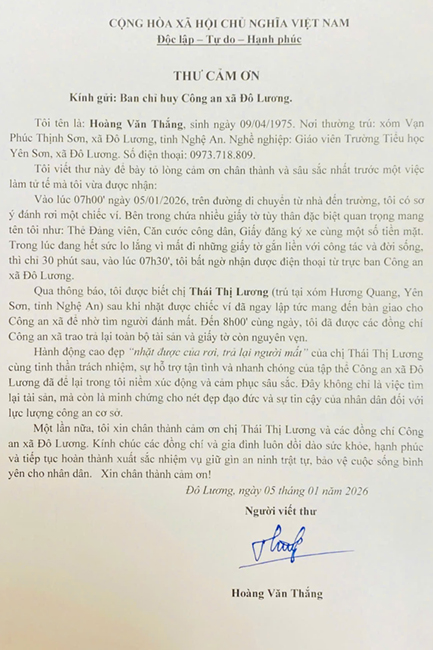 CỘNG HÒA XÃ HỘI CHỦ NGHĨA VIỆT NAM
Độc lập – Tự do – Hạnh phúc
THƯ CẢM ƠN
Kính gửi: Ban chỉ huy Công an xã Đô Lương.
Tôi tên là: Hoàng Văn Thắng, sinh ngày 09/04/1975. Nơi thường trú: xóm Vạn
Phúc Thịnh Sơn, xã Đô Lương, tỉnh Nghệ An. Nghề nghiệp: Giáo viên Trường Tiểu học
Yên Sơn, xã Đô Lương. Số điện thoại: 0973.718.809.
Tôi viết thư này để bày tỏ lòng cảm ơn chân thành và sâu sắc nhất trước một việc
làm tử tế mà tôi vừa được nhận:
Vào lúc 07h00' ngày 05/01/2026, trên đường di chuyển từ nhà đến trường, tôi có sơ
ý đánh rơi một chiếc ví. Bên trong chứa nhiều giấy tờ tùy thân đặc biệt quan trọng mang
tên tôi như: Thẻ Đảng viên, Căn cước công dân, Giấy đăng ký xe cùng một số tiền mặt.
Trong lúc đang hết sức lo lắng vì mất đi những giấy tờ gắn liền với công tác và đời sống,
thì chỉ 30 phút sau, vào lúc 07h30', tôi bất ngờ nhận được điện thoại từ trực ban Công an
xã Đô Lương.
Qua thông báo, tôi được biết chị Thái Thị Lương (trú tại xóm Hương Quang, Yên
Sơn, tỉnh Nghệ An) sau khi nhặt được chiếc ví đã ngay lập tức mang đến bàn giao cho
Công an xã để nhờ tìm người đánh mất. Đến 8h00' cùng ngày, tôi đã được các đồng chí
Công an xã trao trả lại toàn bộ tài sản và giấy tờ còn nguyên vẹn.
Hành động cao đẹp "nhặt được của rơi, trả lại người mất" của chị Thái Thị Lương
cùng tinh thần trách nhiệm, sự hỗ trợ tận tình và nhanh chóng của tập thể Công an xã Đô
Lương đã để lại trong tôi niềm xúc động và cảm phục sâu sắc. Đây không chỉ là việc tìm
lại tài sản, mà còn là minh chứng cho nét đẹp đạo đức và sự tin cậy của nhân dân đối với
lực lượng công an cơ sở.
Một lần nữa, tôi xin chân thành cảm ơn chị Thái Thị Lương và các đồng chí Công
an xã Đô Lương. Kính chúc các đồng chí và gia đình luôn dồi dào sức khỏe, hạnh phúc
và tiếp tục hoàn thành xuất sắc nhiệm vụ giữ gìn an ninh trật tự, bảo vệ cuộc sống bình
yên cho nhân dân. Xin chân thành cảm ơn!
Đô Lương, ngày 05 tháng 01 năm 2026
Người viết thư
Hoàng Văn Thắng